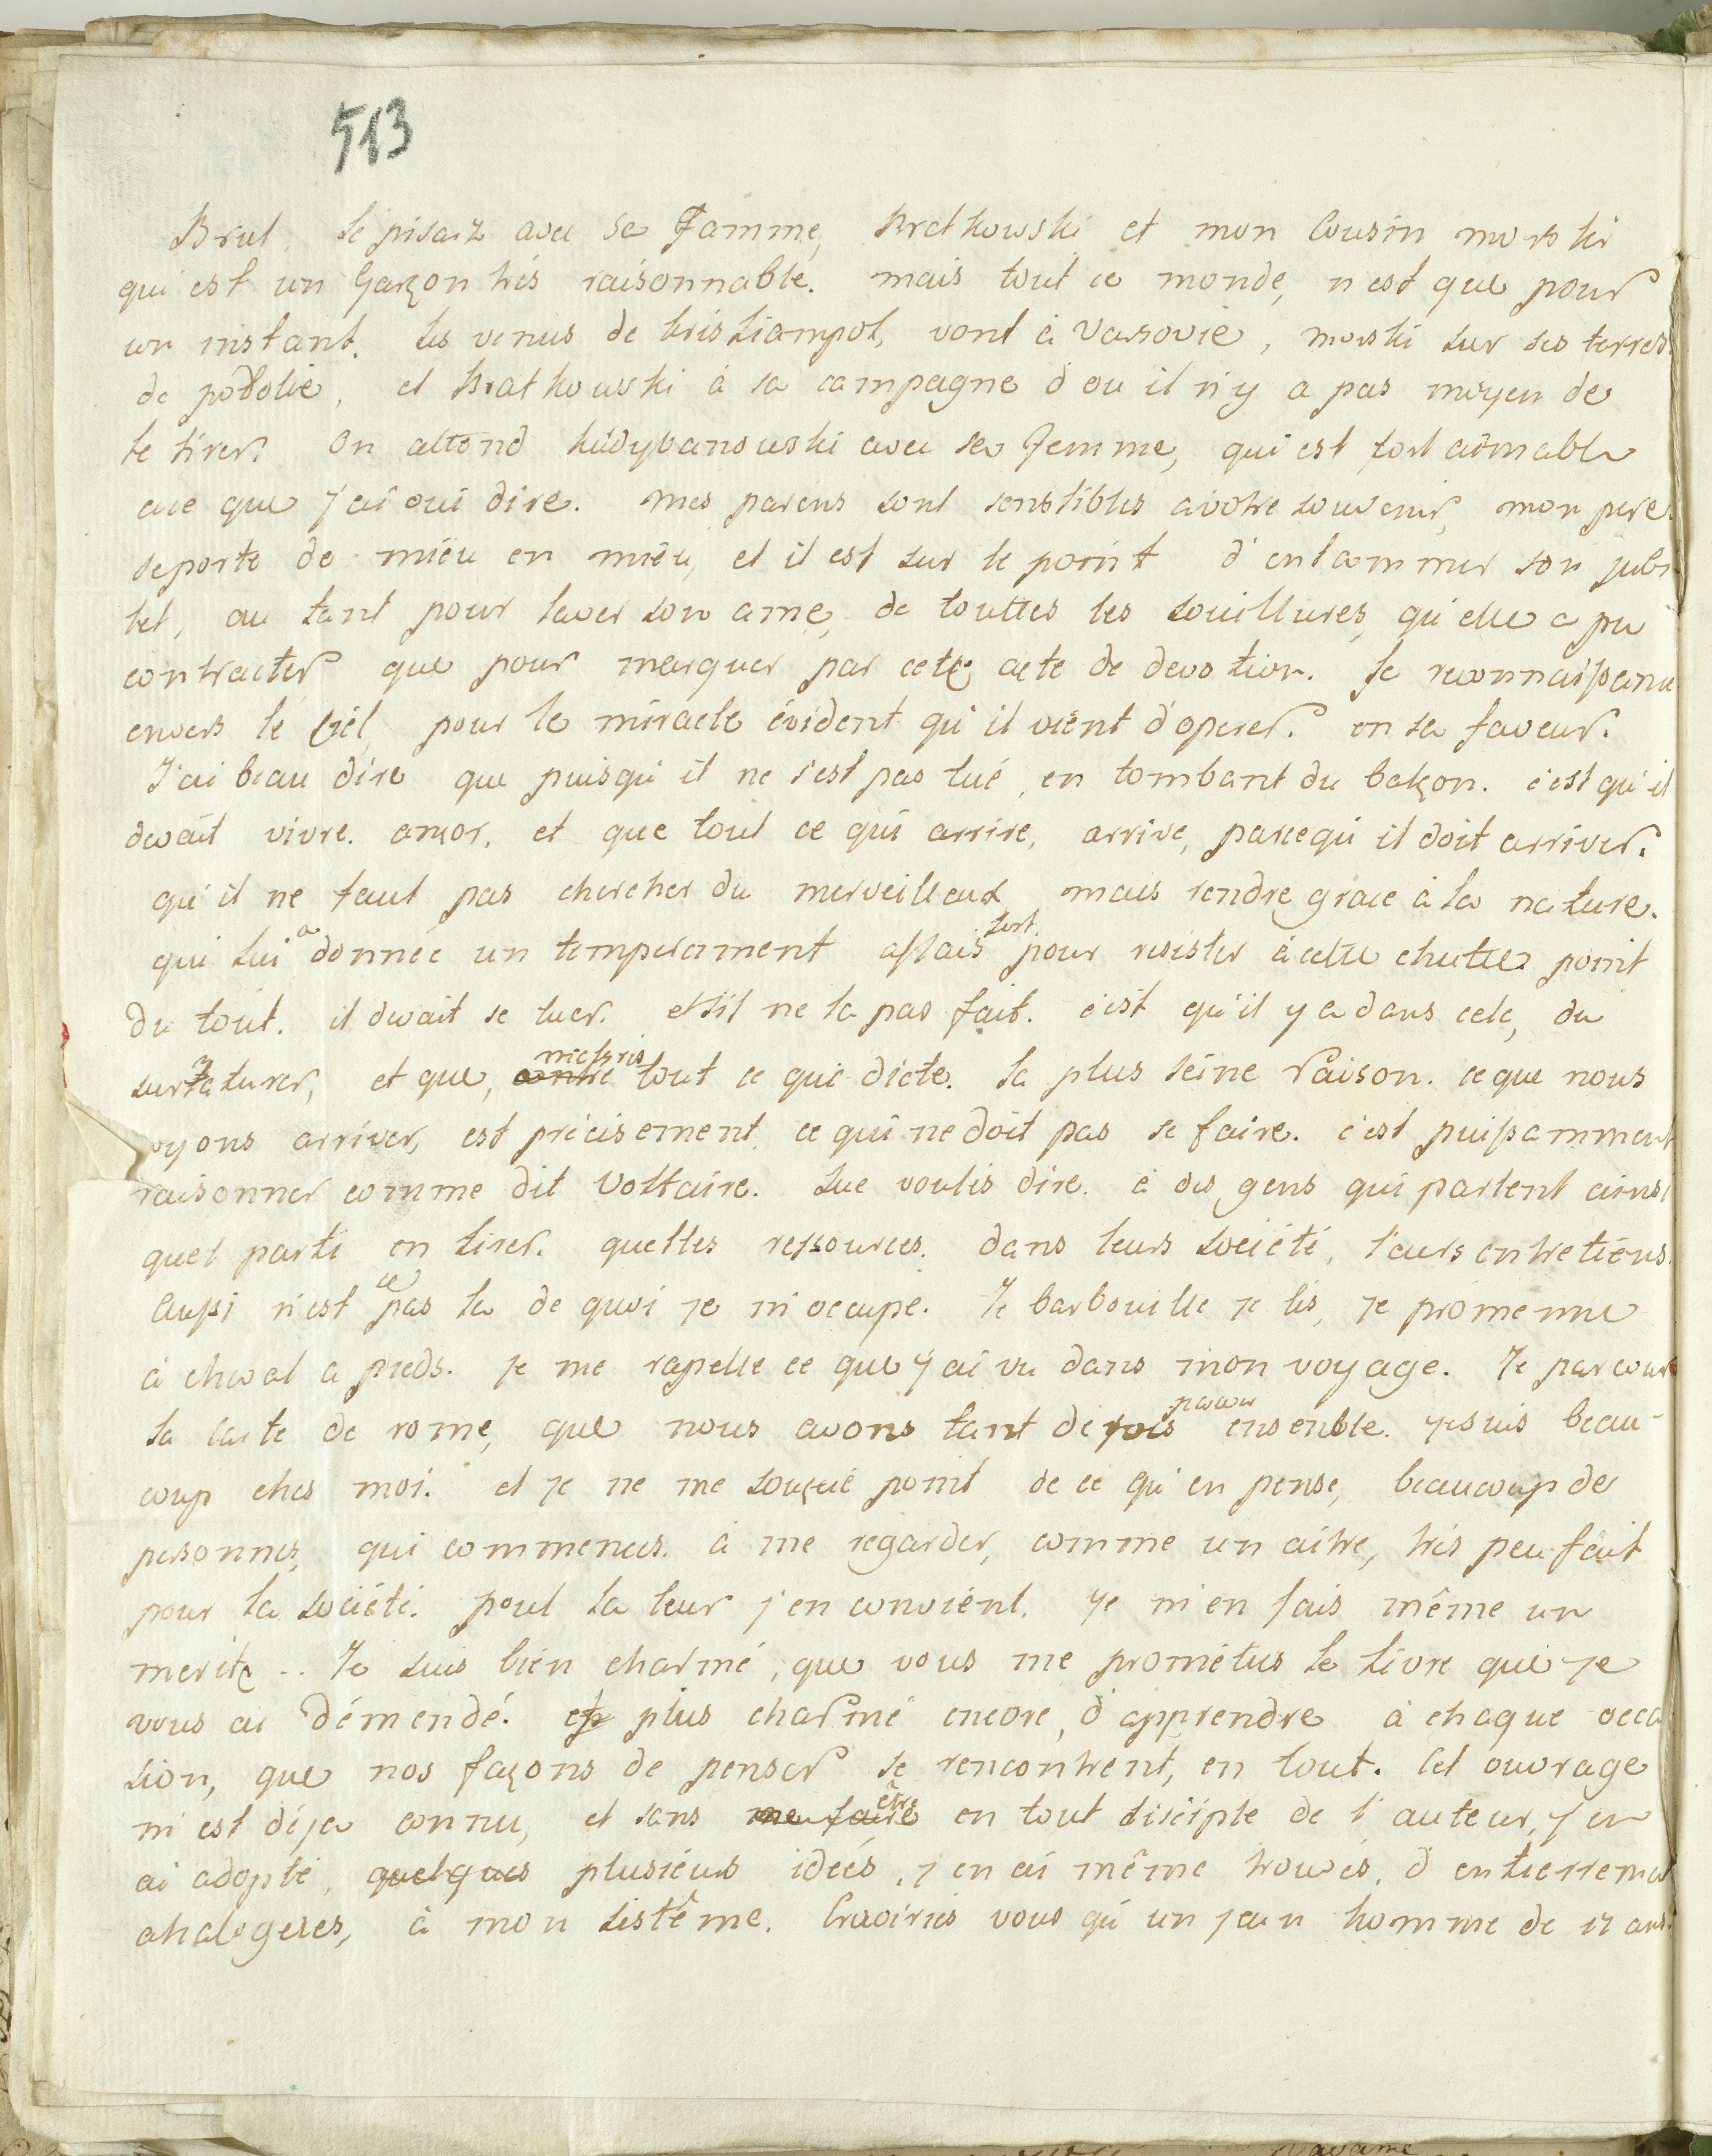 513
Brul, le pisarz avec sa Famme, Bratkowski et mon Cousin morski
qui est un Garçon trés raisonnable. mais tout ce monde, n'est que pour
un instant. les venus de Kristiampol, vont à Varsovie, morski sur ses terres
de podolie, et Bratkowski à sa campagne d'ou il n'y a pas moyen de
le tirer. On attend avec sa Femme, qui est fort aimable
ace que j'ai oui dire. mes parens sont senstibles avotre souvenir, mon pere
seporte de mieu en mieu, et il est sur le point d'entammer son jubi
lel, au tant pour laver son ame, de touttes les souillures, qu'elle a pu
contracter que pour marquer par cette acte de devotion. sa reconnaissance
envers le Ciel, pour le miracle évident qu'il vient d'operer. en sa faveur.
J'ai beau dire que puisqu'il ne s'est pas tué, en tombant du balçon. c'est qu'il
devait vivre. ançor, et que tout ce qui arrive, arrive, parcequ'il doit arriver.
qu'il ne faut pas chercher du merveilleux mais rendre grace à la nature.
qui lui a donnée un temperament assais fort pour resister à cette chutte. point
du tout. il devait se tuer. et s'il ne la pas fait. c'est qu'il y a dans cela, du
surnaturer, et que, contre mepris tout ce que dicte. la plus seine raison. ce que nous
oyons arriver, est précisement, ce qui ne doit pas se faire. c'est puissamment
raisonner comme dit Voltaire. Que voulés dire. à des gens qui parlent ainsi
quel parti en tirer. quelles ressources. dans leurs société, l'eurs entretiens.
Aussi n'est ce pas la de quoi je m'occupe. Je barbouille je lis, je promenne
à cheval a pieds. je me rapelle ce que j'ai vu dans mon voyage. Je parcours
la carte de rome, que nous avons tant de fois ensenble. je suis beau-
coup chés moi. et je ne me souçuie point de ce qu'en pense, beaucoup de
personnes, qui commences. à me regarder, comme un aitre, très peu fait
pour la société. pour la leur j'en convient. je m'en fais même un
merite .. Je suis bien charmé, que vous me prométés le livre que je
vous ai démendé. et plus charmé encore, d'apprendre à chaque occa
sion, que nos façons de penser se rencontrent, en tout. Cet ouvrage
m'est déja connu, et sans me faire être en tout disciple de l'auteur, j'en
ai adopté, quelques plusieurs idées, j'en ai même trouvés, d'entierremet
analogeres, à mon sistême. Croiriés vous qu'un jeun homme de 17 ans.